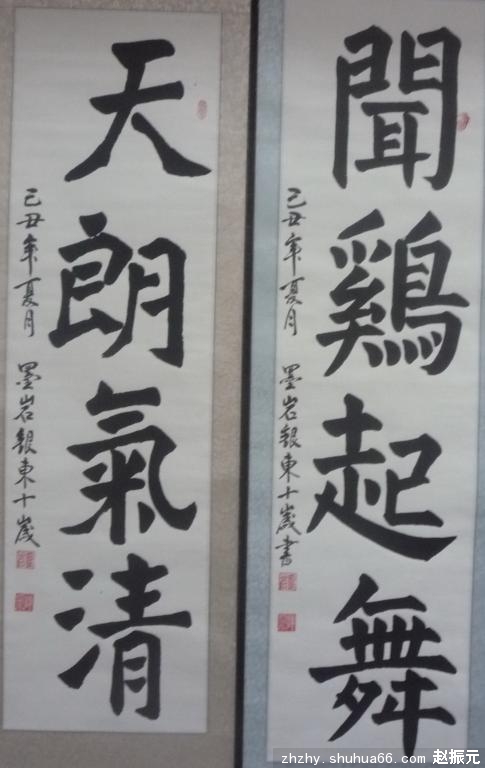 聞鷄起舞
己丑年夏月 墨岩銀東十歲書
天朗氣清
己丑年夏月 墨岩銀東十歲
zhzhy.shuhua66.com 赵振元